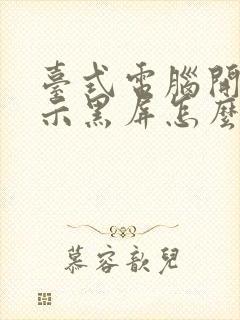 臺式電腦開
示黑屏怎麼
慕容歆兒